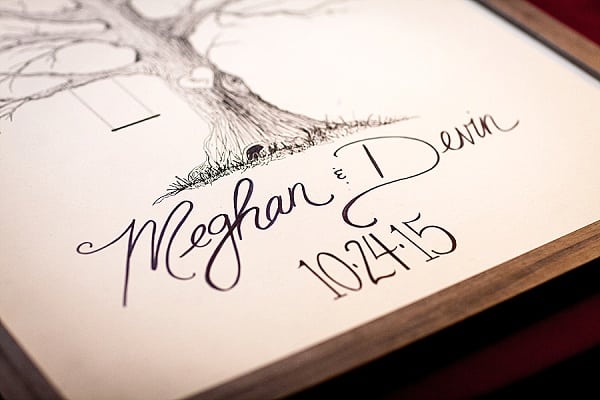 Meghan & Devin
10·24·15